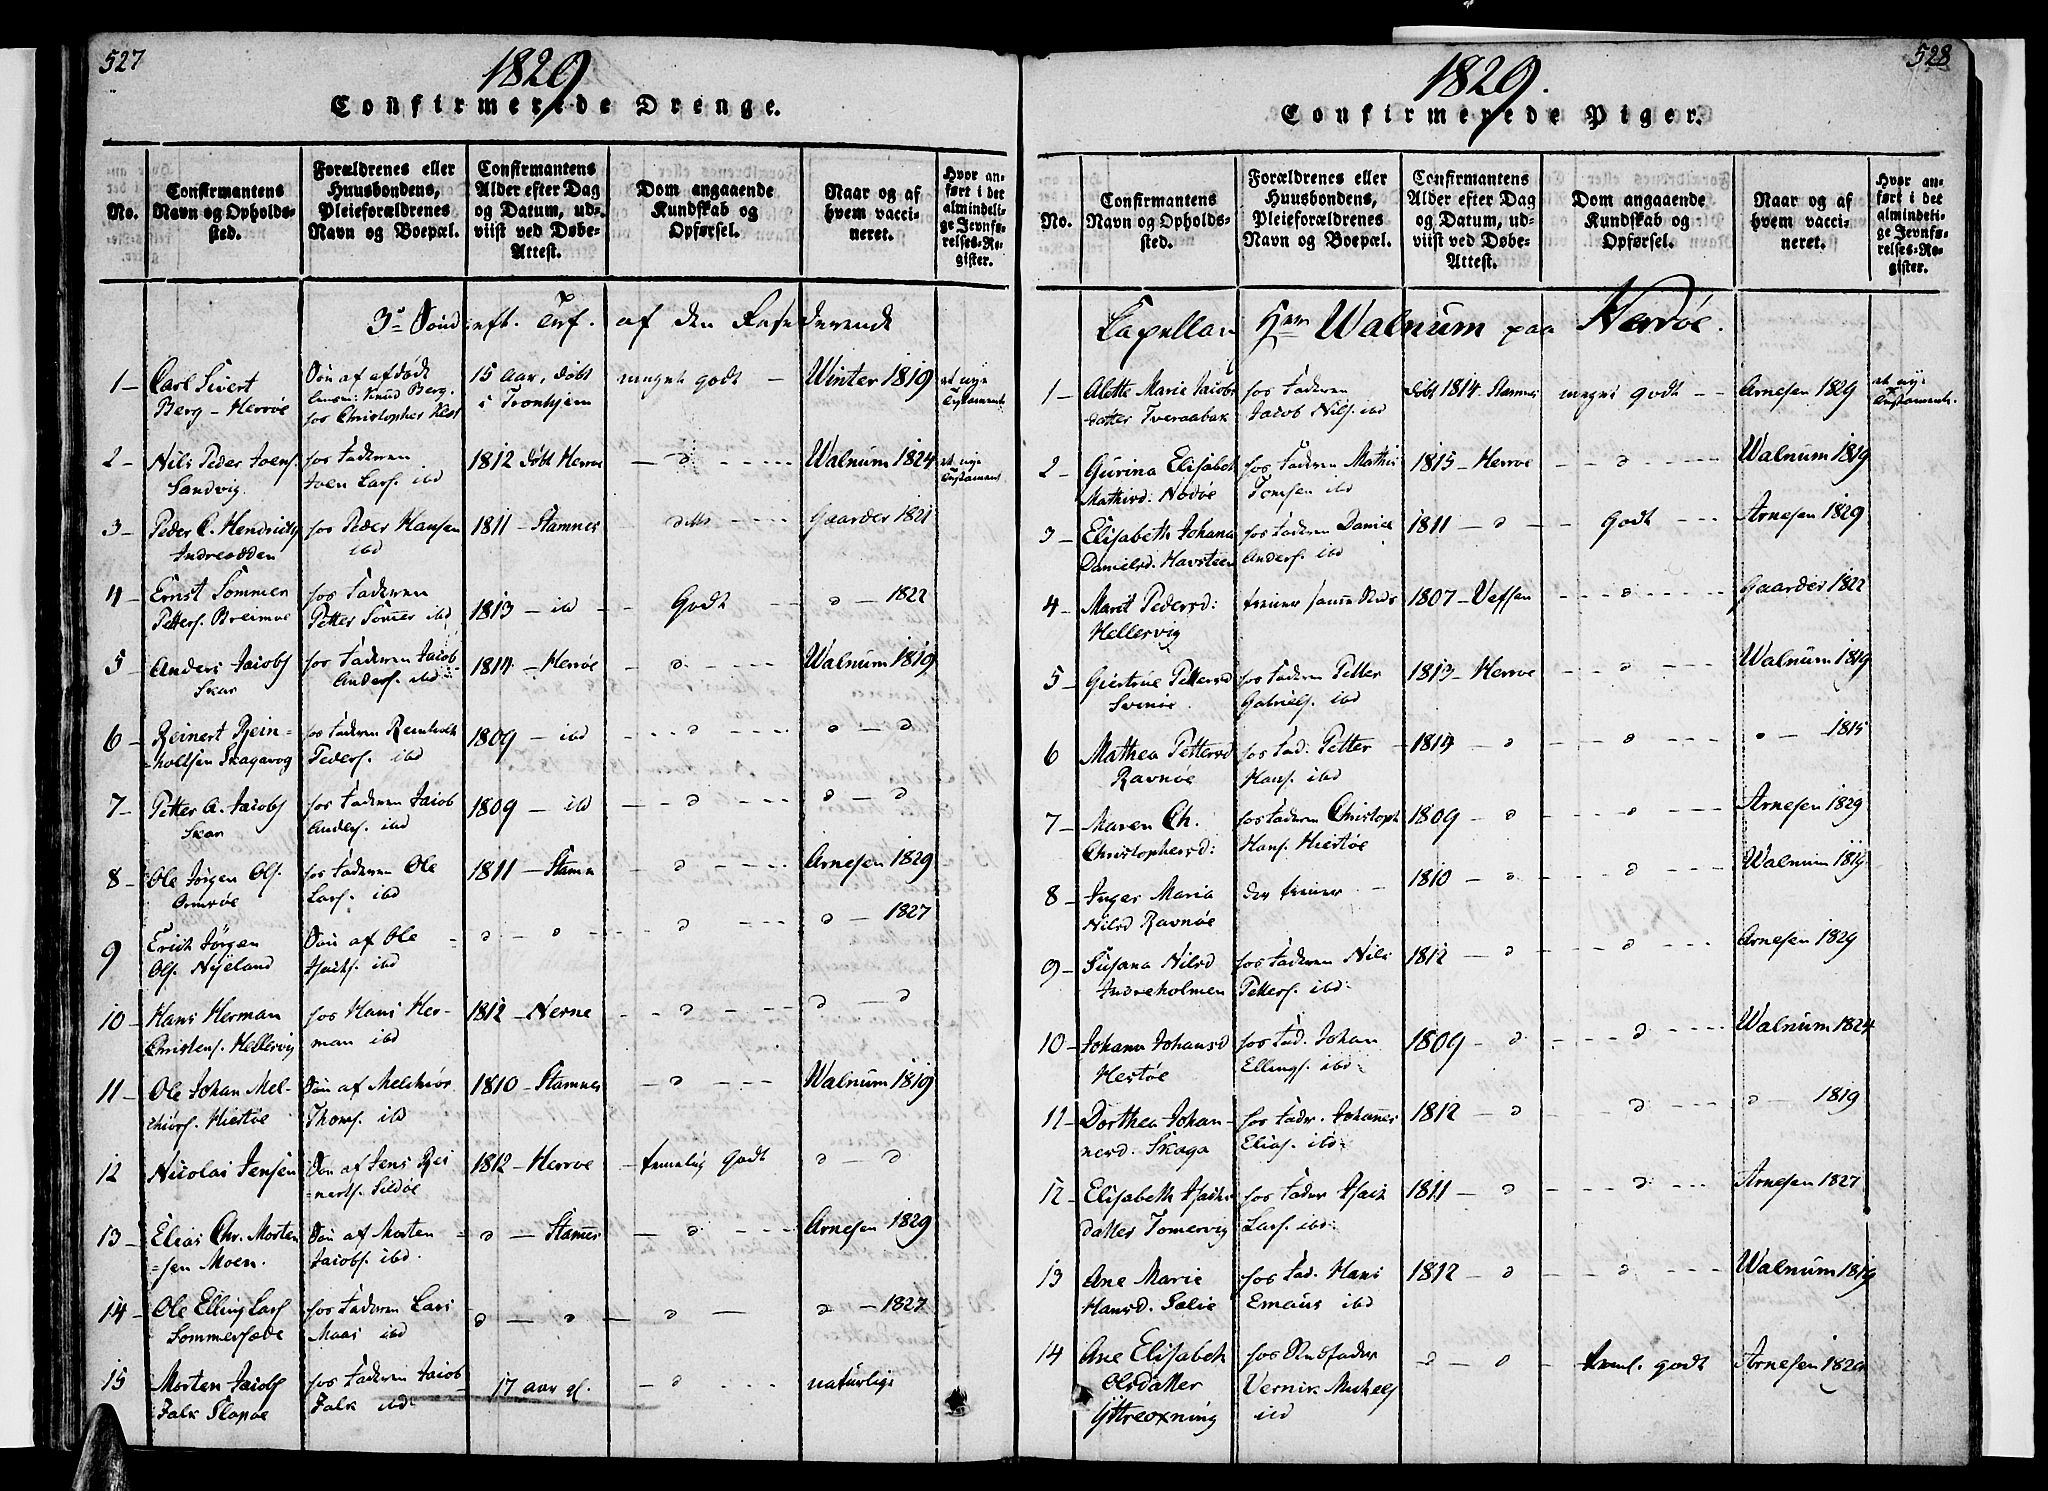 527
1829
Confirmerede Drenge.
No.
Confirmantens
Navn og Opholds-
sted.
Forældrenes eller
Huusbondens,
Pleieforældrenes
Navn og Boepæl.
Confirmantens
Alder efter Dag
og Datum, ud-
viist ved Døbe-
Attest.
Dom angaaende
Kundskab og
Opførsel.
Naar og af
hvem vacci-
neret.
Hvor an-
ført i det
almindeli-
ge Jevnfø-
relses-Re-
gister.
3e Sønd: eft. Trf. af den Resederende
1 - Carl Sivert
Berg - Herrøe
Søn af afdøde
Knud Berg.
hos Christopher
15 Aar, døbt
i Tronhjem
meget godt -
Winter 1819
et nyt
Testamente
2 - Nils Peder Joens.
Sandvig.
hos Faderen
Joen Lars. ibd
1812 døbt Herroe
- d - - - -
Walnum 1824
et nye
Testament
3 - Peder C. Hendrichs
Indreødden
hos Peder Hansen
ibd
1811 - Stamnes
- ditto - - -
Gaarder 1821
4 - Ernst Sommer
Petters. Breimoe
hos Faderen
Petter Somer ibd
1813 - ibd
Godt
d - 1822
5 - Anders Jaiobs
Skar
hos Faderen Jaiob
Anders. ibd
1814 - Herrøe
- d - - - -
Walnum 1819
6 - Reinert Rein=
=holtsen Skagavog
hos Faderen Reinholt
Peders. ibd
1809 - ibd
- - - d - - -
d - d
7 - Petter A. Jaiobs
Skar
hos Faderen Jaiob
Anders. ibd
1809 - ibd
- - d - - -
d - d
8 - Ole Jørgen Ols.
Ormsøe
hos Faderen Ole
Lars. ibd
1811 - Stamn
- d - - -
Arnesen 1829
9 Erich Jørgen
Ols. Nyeland
Søn af Ole
Isachs. ibd
d - d - -
d - - -
d - 1827
10 - Hans Herman
Christens. Hellesvig
hos Hans Her-
man ibd
1812 - Nerne
- - d - - -
d - d
11 - Ole Johan Mel-
chiors. Hiestøe
Søn af Melchior
Thoms. ibd
1810 - Stamnes
- d - - -
Walnum 1819
12 Nicolai Jensen
Søn af Jens Rei
=nerts. Sildøe
1812 - Herroe
- temelig godt
d - d
13 - Elias Chr. Morten
=sen Moen.
Søn af Morten
Jaiobs. ibd.
d - Stames
- d - - -
Arnesen 1829
14 - Ole Elling Lars
Sommersæde
hos Faderen Lars
Maas ibd
d - d -
d -
d - 1827
15 Morten Jaiobs
Falk Slapøe
hos Faderen Jaiob
Falk ibd
17 aar gl.
- d - - -
naturlige
528
1829.
Confirmerede Piger.
No.
Confirmantens
Navn og Opholds-
sted.
Forældrenes eller
Huusbondens,
Pleieforældrenes
Navn og Boepæl.
Confirmantens
Alder efter Dag
og Datum, ud-
viist ved Døbe-
Attest.
Dom angaaende
Kundskab og
Opførsel.
Naar og af
hvem vacci-
neret.
Hvor an-
ført i det
almindeli-
ge Jevnfø-
relses-Re-
gister.
Capellan Herr Walnum paa Herrøe.
1 - Alette Marie Jaiobs
datter Tveraabak
hos Faderen
Jacob Nils. ibd
døbt 1814 Stamnes
meget godt - -
Arnesen 1829
et nyt
Testamente.
2 - Gurina Elisabet
Mathisd: Nordøe
hos Faderen Mathis
Tomsen ibd
1815 - Herroe
- - d - - - -
Walnum 1819
3 - Elisabeth Johana
Danielsd. Havsteen
hos Faderen Daniel
Anders. ibd
1811 - d -
- Godt - - -
Arnesen 1829
4 - Marit Pedersd:
Hellesvig
tiener
1807 - Vefsen
- - d - - -
Gaarder 1822
5 - Giertrue Pettersd
Svinøe
hos Faderen Petter
Gabriels. ibd
1813 - Herroe
- - d - - -
Walnum 1819
6 Mathea Pettersd
Ravnøe
hos Fad: Petter
Hans. ibd
1814 - d -
- - d - - -
" - 1815
7 - Maren Ch.
Christophersd:
hos Faderen Christoph
Hans. Hiestøe
1809 - d -
- - d - - -
Arnesen 1829
8 - Inger Maria
Nilsd Ravnøe
der tiener -
1810 - d -
- - d - - -
Walnum 1819
9 - Susana Nilsd
Indreholmen
hos Faderen Nils
Petters. ibd.
1812 - d
- - d - - -
Arnesen 1829
10 - Johana Johansd
Hestøe
hos Fad. Johan
Ellings. ibd.
1809 - d
- - - d - - -
Walnum 1824
11 - Dorthea Johan-
nesd. Skaga
hos Fader. Johannes
Elias. ibd.
1812 - d
- - - d - - -
d - 1819
12 - Elisabeth Isachs
datter Tomervig
hos Fader Isach
Lars. ibd.
1811 - d
- - - d - - -
Arnesen 1827
13 Ane Marie
Hansd. Sælie
hos Fad. Hans
Emaus ibd
1812 - d
- - d - - -
Walnum 1819
14 Ane Elisabeth
Olsdatter
Yttreøxning
hos Stedfader
Vernik Michels
ibd
d - d
- teml. godt
Arnesen 1829